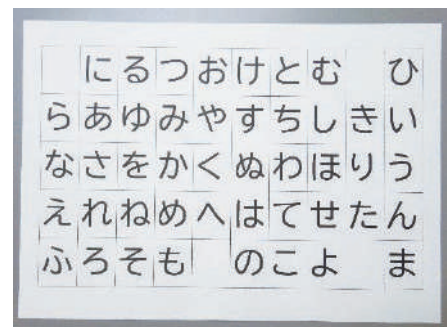 にるつおけとむ ひ
らあゆみやすちしきい
なさをかくぬわほりう
えれねめへはてせたん
ふろそも のこよ ま